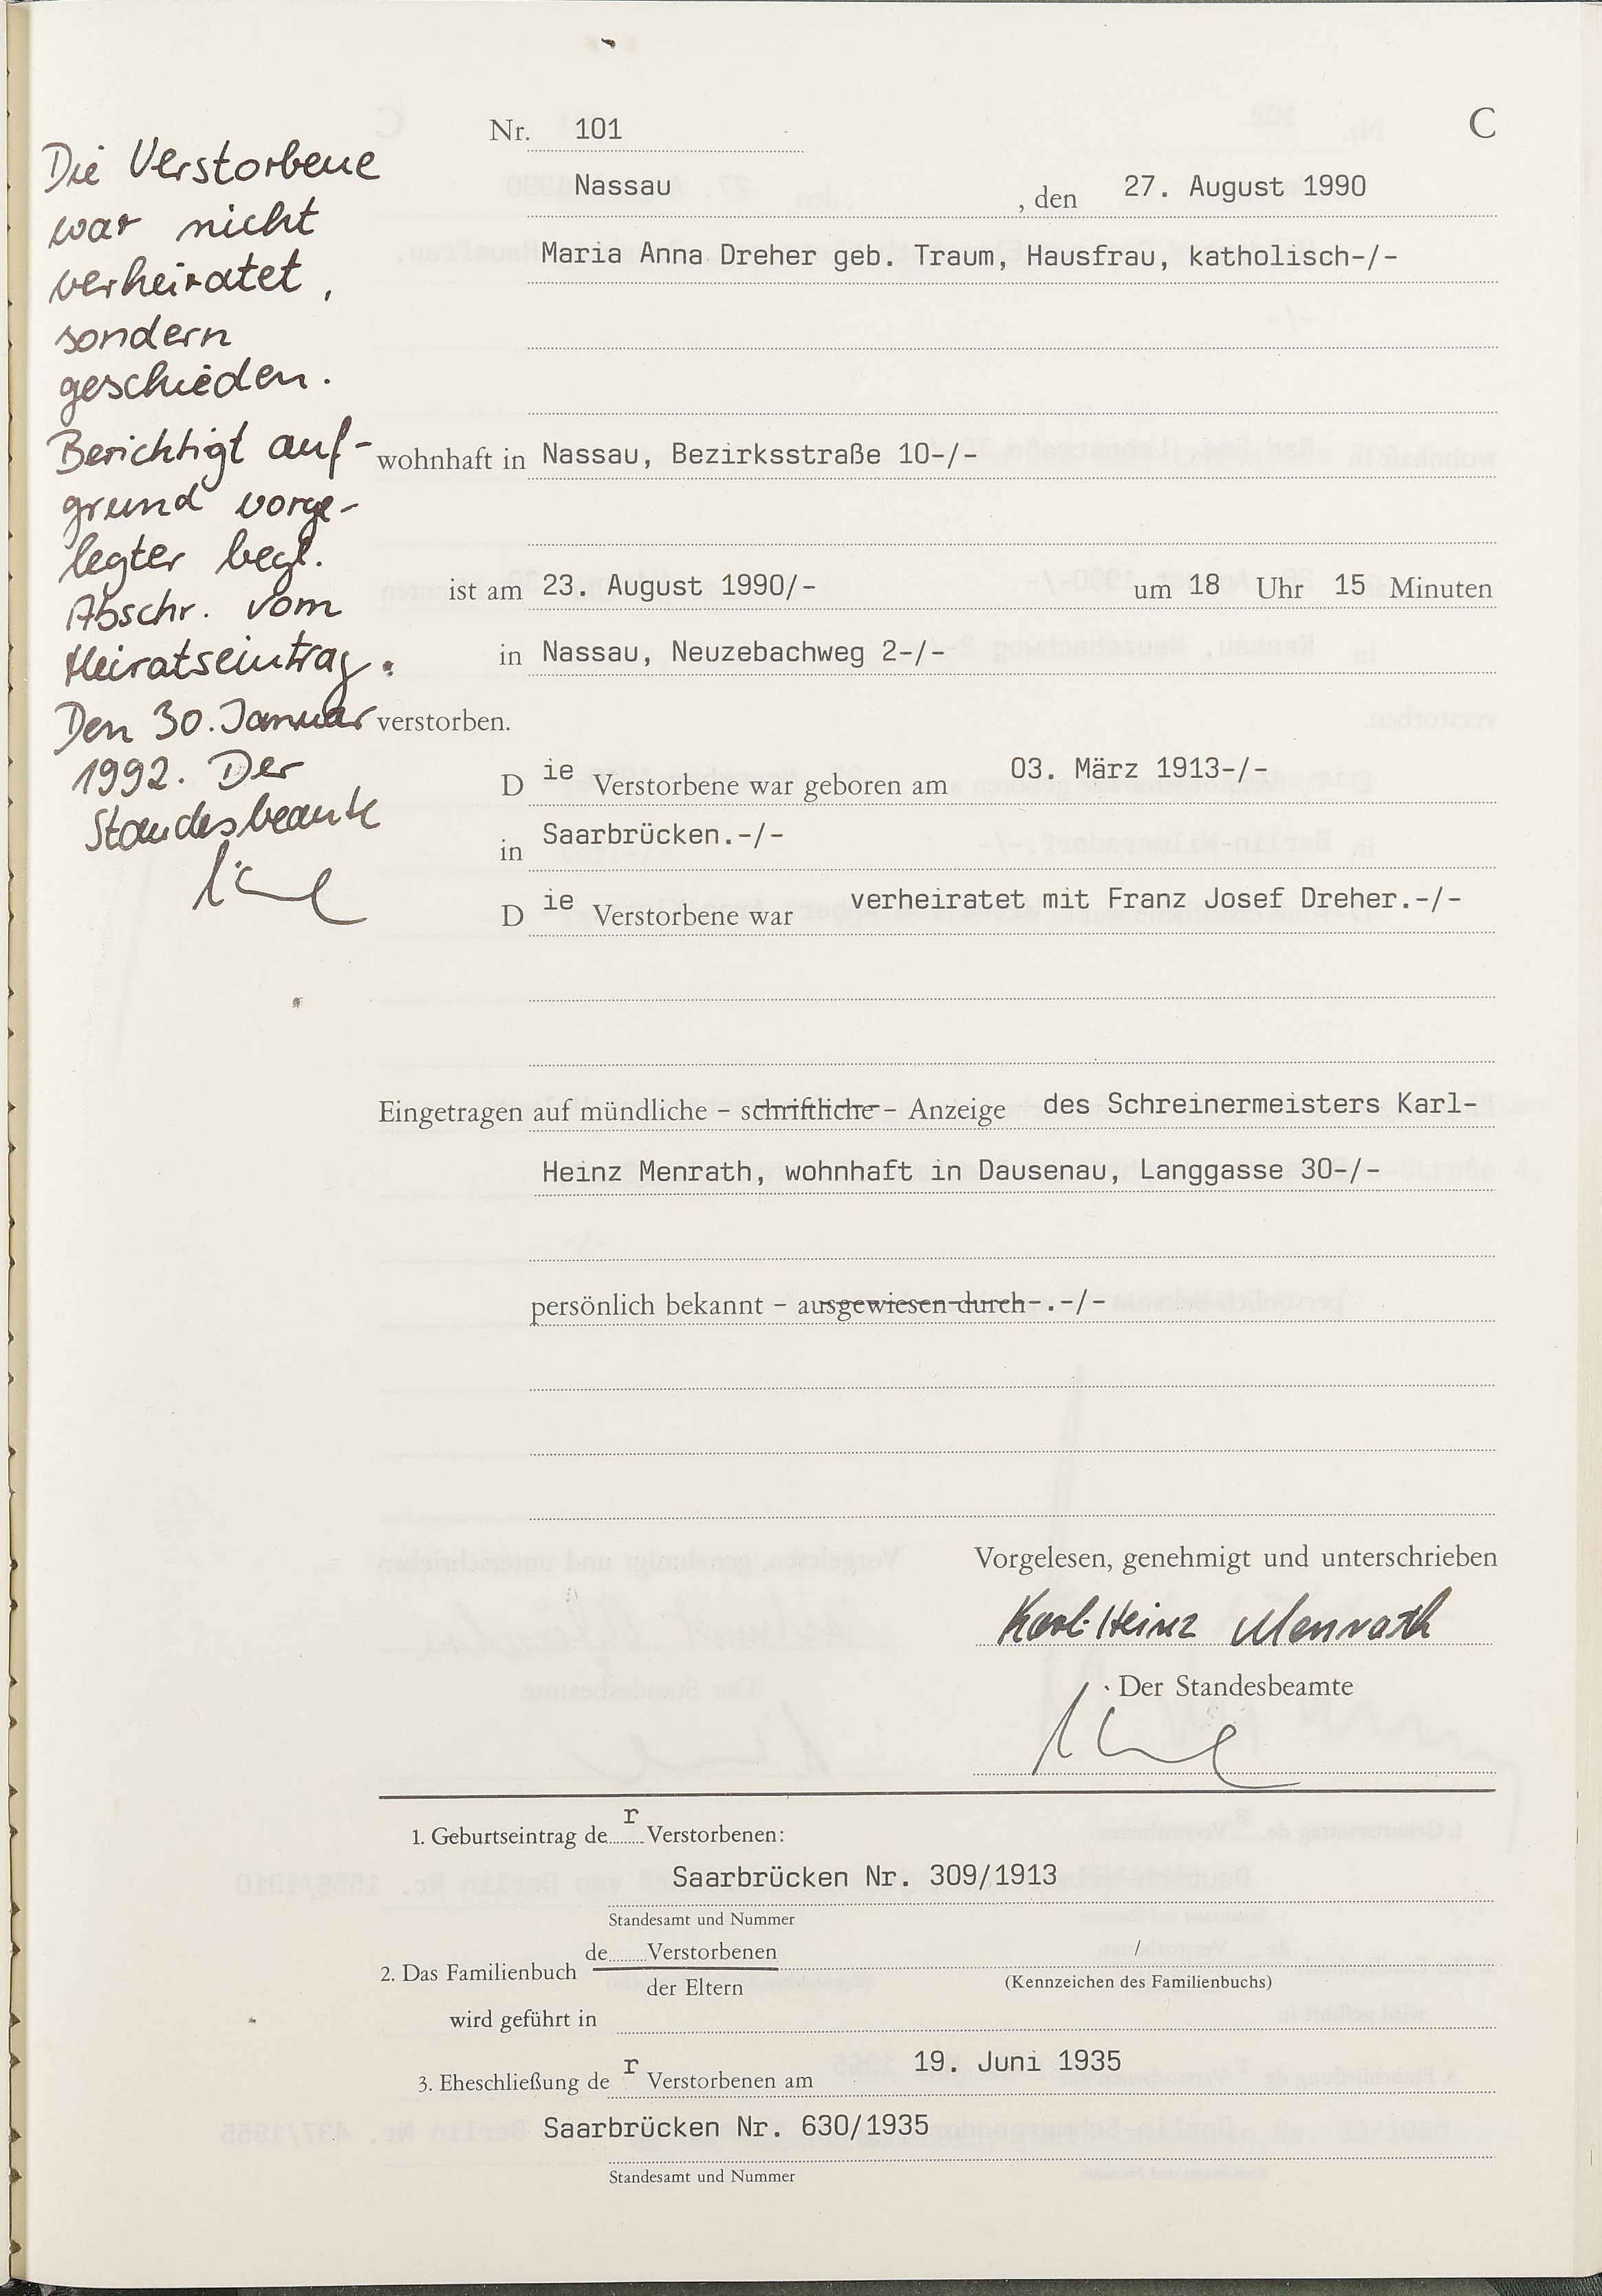 Nr. 101 C
Nassau, den 27. August 1990
Maria Anna Dreher geb. Traum, Hausfrau, katholisch-/-
wohnhaft in Nassau, Bezirksstraße 10-/-
ist am 23. August 1990/- um 18 Uhr 15 Minuten
in Nassau, Neuzebachweg 2-/-
verstorben.
Die Verstorbene war geboren am 03. März 1913-/-
in Saarbrücken.-/-
Die Verstorbene war verheiratet mit Franz Josef Dreher.-/-
Eingetragen auf mündliche – schriftliche – Anzeige des Schreinermeisters Karl-
Heinz Menrath, wohnhaft in Dausenau, Langgasse 30-/-
persönlich bekannt – ausgewiesen durch-.-/-
Vorgelesen, genehmigt und unterschrieben
Karl-Heinz Menrath
Der Standesbeamte
1. Geburtseintrag der Verstorbenen:
Saarbrücken Nr. 309/1913
Standesamt und Nummer
2. Das Familienbuch de......Verstorbenen /
der Eltern (Kennzeichen des Familienbuchs)
wird geführt in
3. Eheschließung der Verstorbenen am 19. Juni 1935
Saarbrücken Nr. 630/1935
Standesamt und Nummer
Die Verstorbene
war nicht
verheiratet,
sondern
geschieden.
Berichtigt auf-
grund vorge-
legter begl.
Abschr. vom
Heiratseintrag.
Den 30. Januar
1992. Der
Standesbeamte